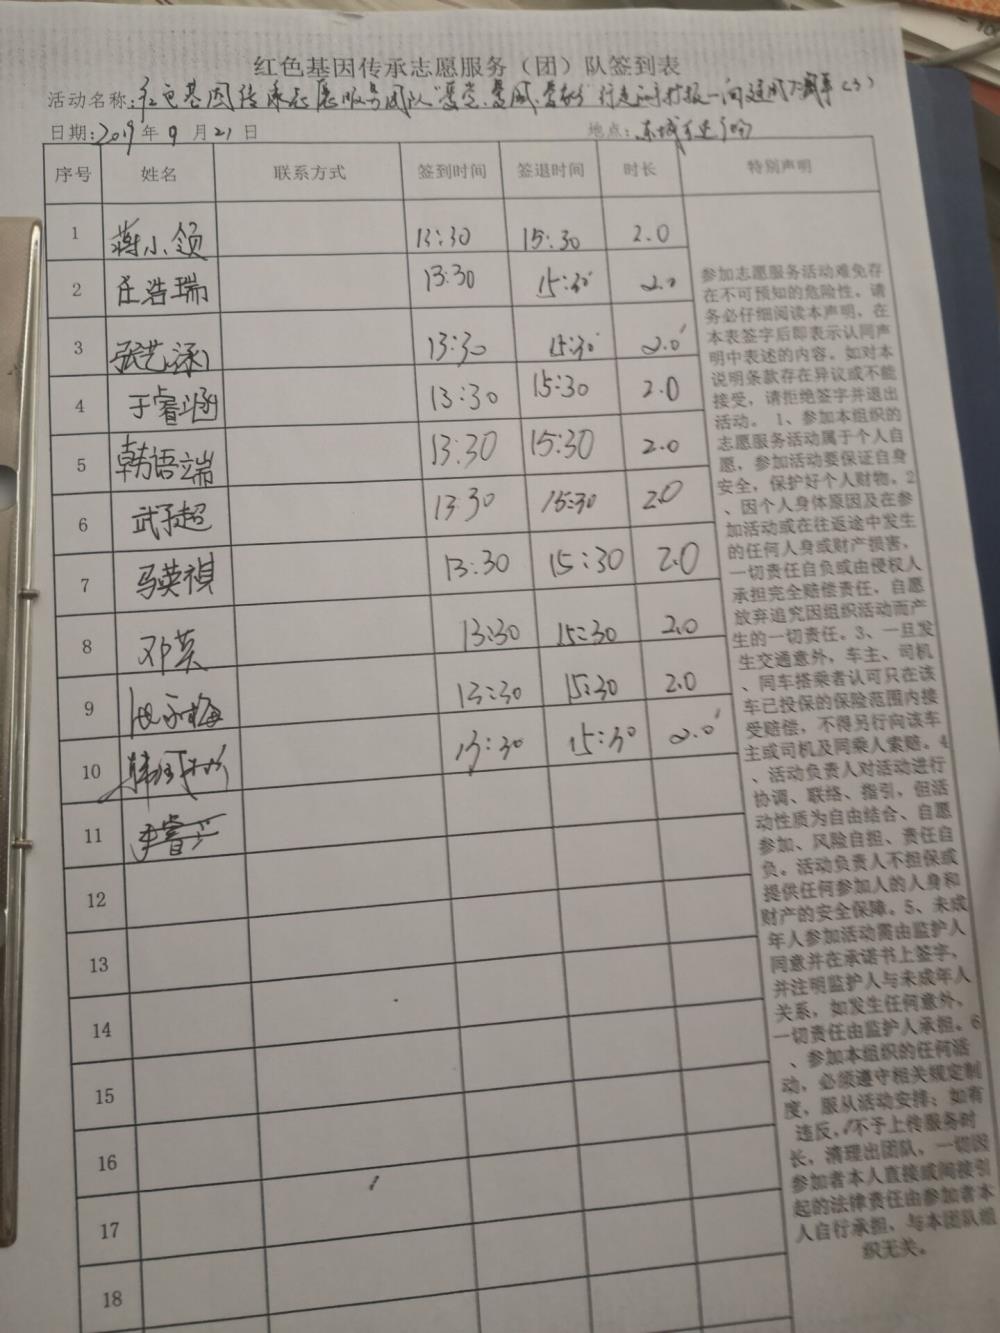 红色基因传承志愿服务（团）队签到表
活动名称：红色基因传承志愿服务团队
日期：2019年9月21日 地点：东城
序号 姓名 联系方式 签到时间 签退时间 时长 特别声明
1 蒋小领 13:30 15:30 2.0
2 庄浩瑞 13:30 15:30 2.0
3 张艺涵 13:30 15:30 2.0
4 于睿涵 13:30 15:30 2.0
5 韩语端 13:30 15:30 2.0
6 武子超 13:30 15:30 2.0
7 马英祯 13:30 15:30 2.0
8 邓英 13:30 15:30 2.0
9 13:30 15:30 2.0
10 13:30 15:30 2.0
11 李睿
12
13
14
15
16
17
18
参加志愿服务活动难免存
在不可预知的危险性。请
务必仔细阅读本声明，在
本表签字后即表示认同声
明中表述的内容。如对本
说明条款存在异议或不能
接受，请拒绝签字并退出
活动。1、参加本组织的
志愿服务活动属于个人自
愿，参加活动要保证自身
安全，保护好个人财物。2
、因个人身体原因及在参
加活动或在往返途中发生
的任何人身或财产损害，
一切责任自负或由侵权人
承担完全赔偿责任，自愿
放弃追究因组织活动而产
生的一切责任。3、一旦发
生交通意外，车主、司机
、同车搭乘者认可只在该
车已投保的保险范围内接
受赔偿，不得另行向该车
主或司机及同乘人索赔。4
、活动负责人对活动进行
协调、联络、指引，但活
动性质为自由结合、自愿
参加、风险自担、责任自
负。活动负责人不担保或
提供任何参加人的人身和
财产的安全保障。5、未成
年人参加活动需由监护人
同意并在承诺书上签字，
并注明监护人与未成年人
关系，如发生任何意外，
一切责任由监护人承担。6
、参加本组织的任何活
动，必须遵守相关规定制
度，服从活动安排；如有
违反，不予上传服务时
长，清理出团队，一切因
参加者本人直接或间接引
起的法律责任由参加者本
人自行承担，与本团队组
织无关。